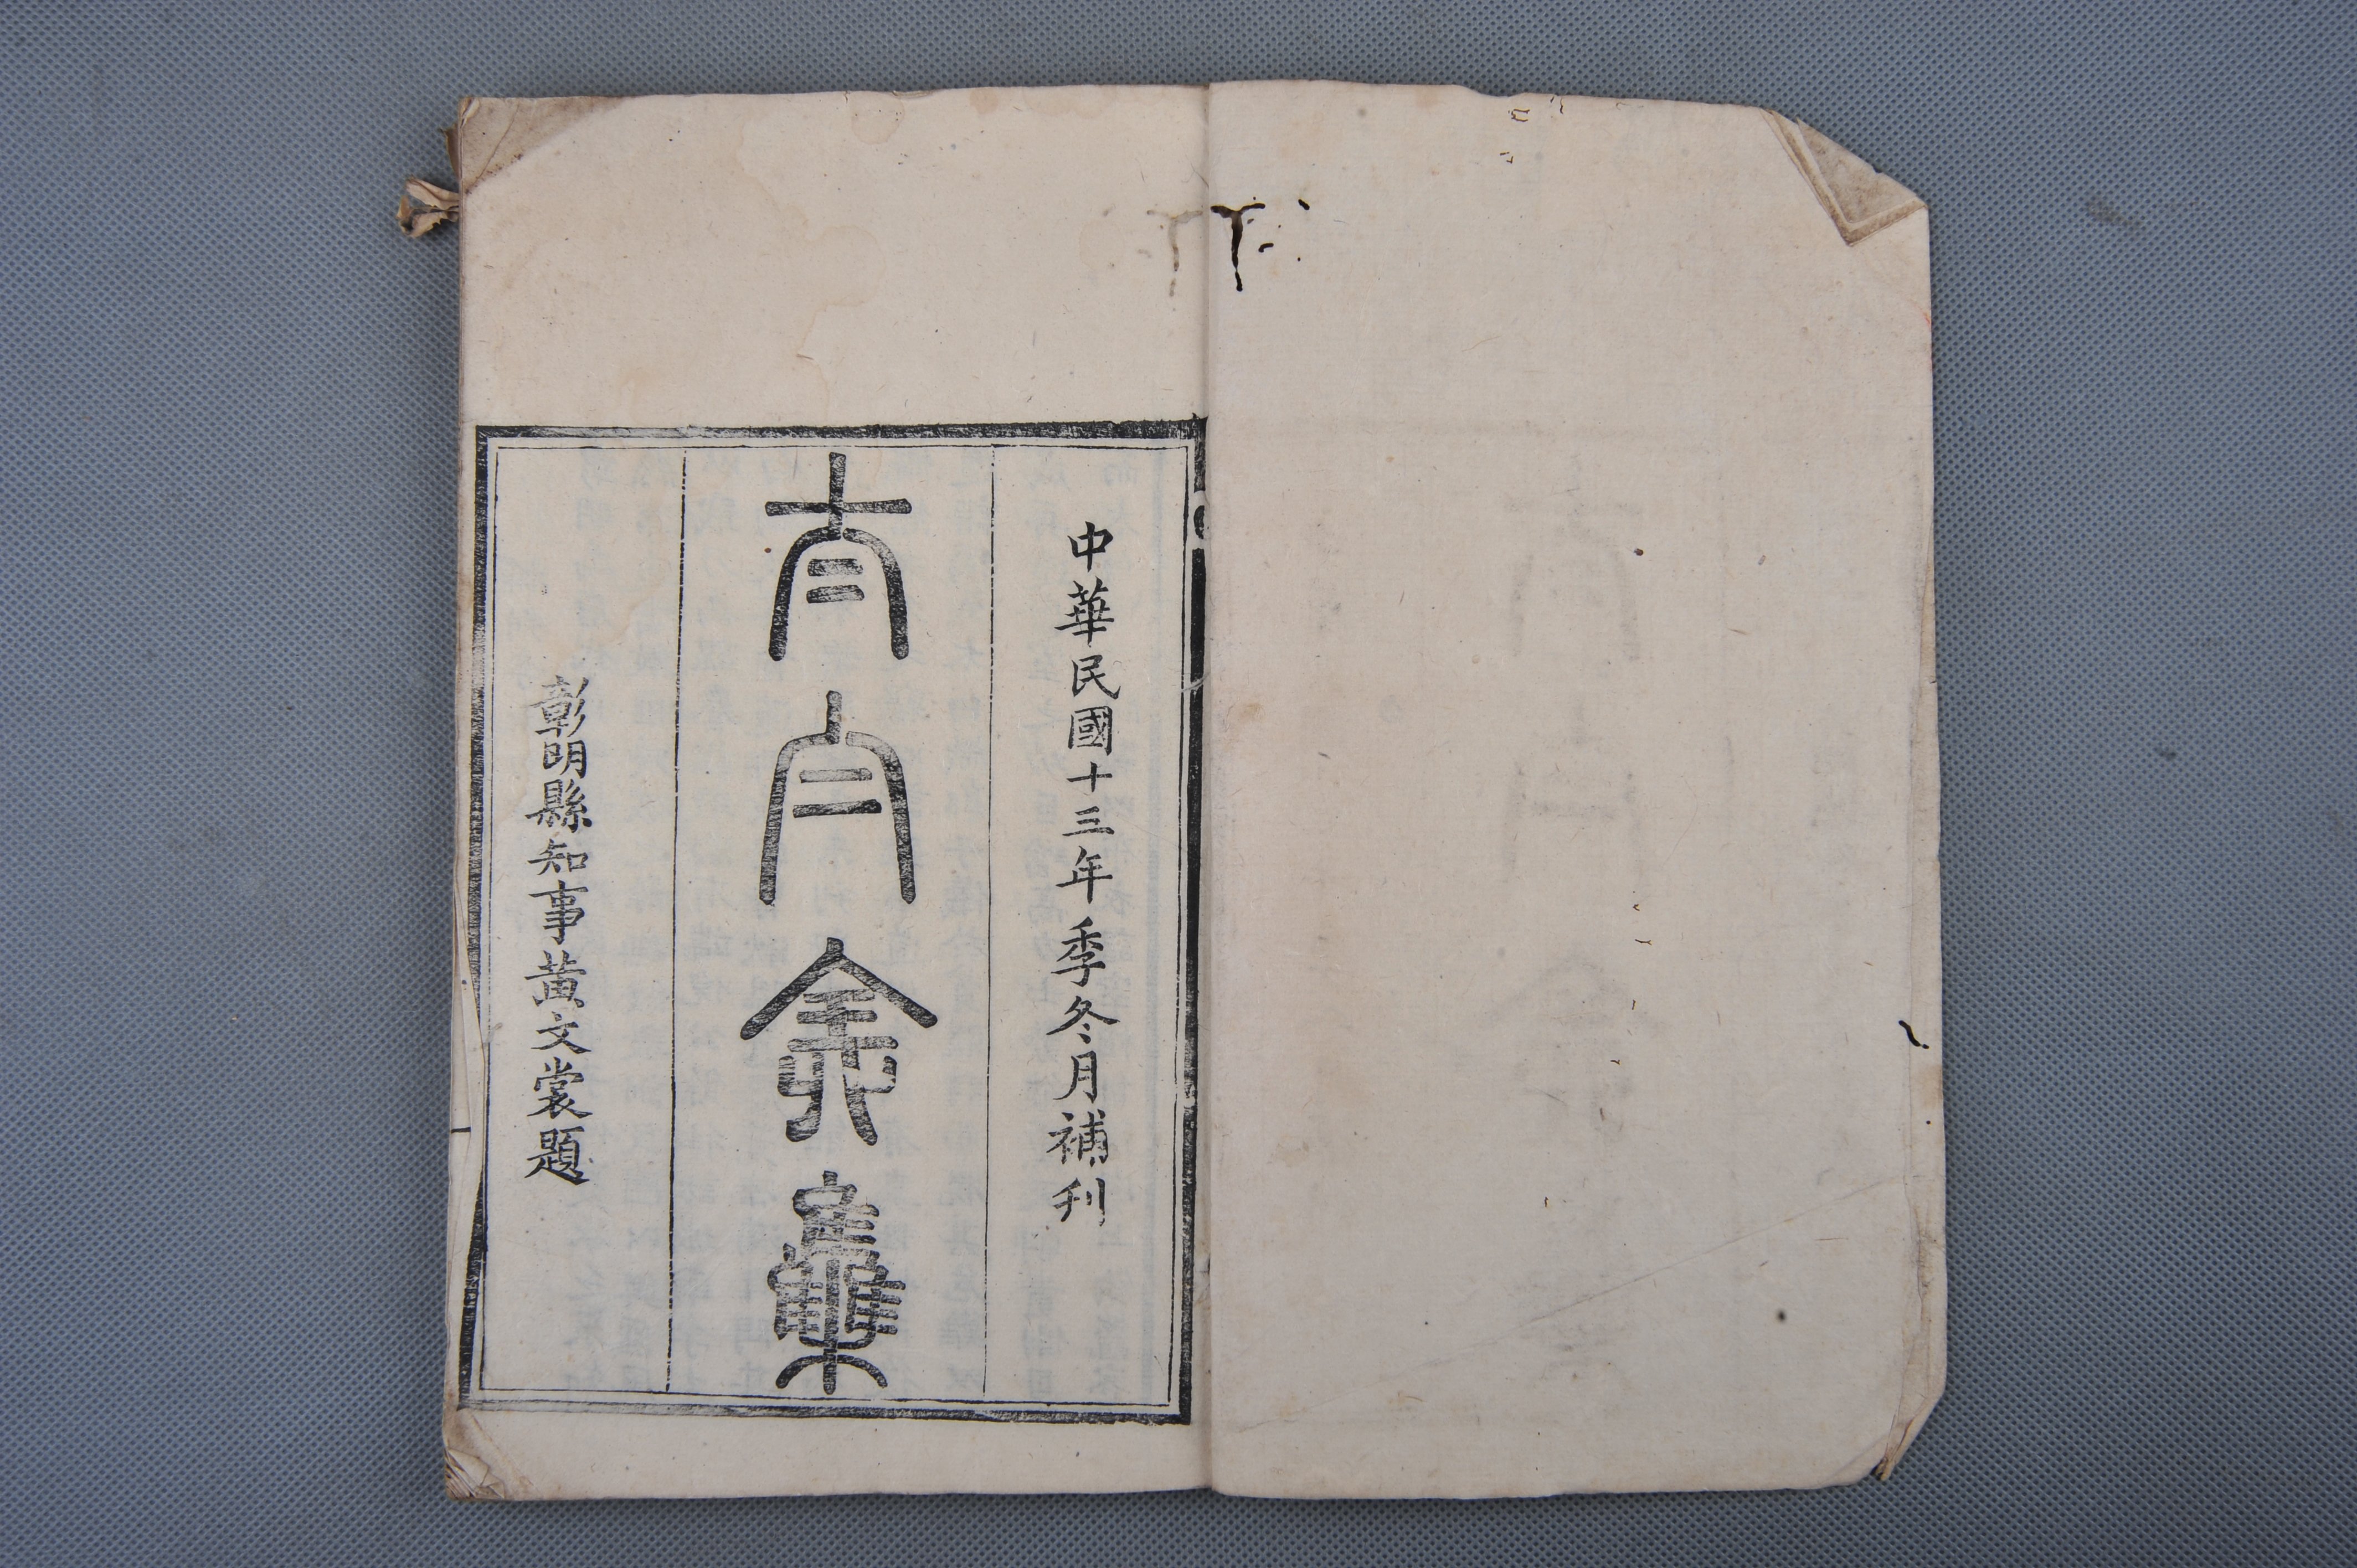 中華民國十三年季冬月補刊
太白全集
彰明縣知事黃文裳題